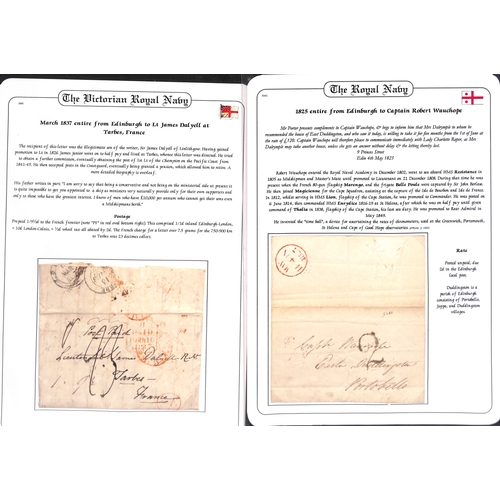 The Victorian Royal Navy
March 1837 entire from Edinburgh to Lt James Dalyell at
Tarbes, France
The recipient of this letter was the illegitimate son of the writer, Sir James Dalyell of Linlithgow. Having gained
promotion to Lt in 1826 James junior went on to half pay and lived at Tarbes, where this letter was directed. He tried
to obtain a further commission, eventually obtaining the post of 1st Lt of the Champion at the Cape from June
1841-43. He then occupied posts in the Coastguard, eventually being granted a pension, which allowed him to retire. A
more detailed biography is overleaf.
His father writes in part "I am sorry to say that being a conservative and not being on the ministerial side at present it
is quite impossible to get you appointed to a ship as ministers will not provide for their own supporters and
only to those who have the present interest. I know of men who have £10,000 per annum who cannot get their sons even
a Midshipmans berth".
Postage
Prepaid
to the French frontier (note "PP" in red denotes origin). This comprised 1/1d Inland Edinburgh-London,
+ 10d London-Calais, + ½d which was all abated by 2d. The French charge for a letter over 7.5 grams for 750-900 km
to Tarbes was 23 decimes collect.
Post Paid
Lieutenant James Dalyell R.N
Tarbes
France
The Royal Navy
1825 entire from Edinburgh to Captain Robert Wauchope
Mr Porter presents compliments to Captain Wauchope, & begs to inform him that Mrs Dalrymple to whom he
recommended the house of East Duddingston, and who saw it today, is willing to take it for five months from the 1st of June at
the rate of £120. Captain Wauchope will therefore please to communicate instantly with Lady Charlotte Hope, as Mrs
Dalrymple may take another house, unless she gets an answer without delay & the letting thereby lost.
9 Princes Street
Edin 4th May 1825
Robert Wauchope entered the Royal Naval Academy in December 1802, went to sea aboard HMS Resistance in
1805 as Midshipman and Master's Mate until promoted to Lieutenant on 21 December 1808. During that time he was
present when the French 80-gun flagship Marengo, and the frigate Belle Poule were captured by Sir John Borlase.
He then joined HMS Magicienne for the Cape Squadron, assisting in the capture of the islands of Ile de Bourbon and Ile de France.
In 1812, whilst serving in HMS Lion, flagship of the Cape Squadron, he was promoted to Commander. He was posted on
6 June 1814, then commanded HMS Eurydice 1816-19 at St Helena, after which he was on half pay until given
command of Thalia in 1834, flagship of the Cape Station, his last sea duty. He was promoted to Rear Admiral in
May 1849.
He invented the "time ball", a device for ascertaining the rates of chronometers, used in the Greenwich, Portsmouth,
St Helena and Cape of Good Hope observatories
Rate
Posted unpaid, due
2d in the Edinburgh
local post.
Duddingston is a
parish of Edinburgh
consisting of
Portobello,
Joppa, and
Duddingston
villages.
Capt Wauchope
Easter Duddingston
Portobello